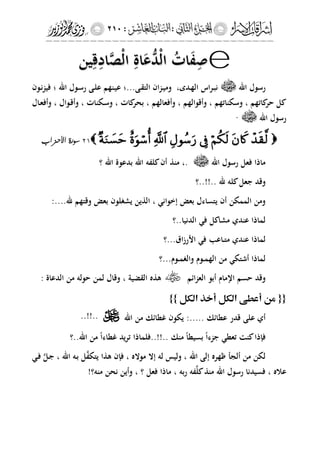 إشراقات إسلامية الجزء الثاني : الباب العاشر : ٢١٠
صِفَاتُ الْدُعَاةِ الْصَّادِقِين
رسول الله ﷺ نبراس الهدى، وميزان التقى...؛ عينهم على رسول الله ؛ فيزنون
كل حركاتهم ، وسكناتهم ، وأقوالهم ، وأفعالهم ، بحركات ، وسكنات ، وأقوال ، وأفعال
رسول الله ﷺ .
﴿ لَّقَدْ كَانَ لَكُمْ فِي رَسُولِ ٱللَّهِ أُسْوَةٌ حَسَنَةٌ ﴾ ٢١ سورة الأحزاب
ماذا فعل رسول الله ﷺ .، منذ أن كلفه الله بدعوة الله ؟
وقد جعل كله لله ..!!..؟
ومن الممكن أن يتساءل بعض إخواني ، الذين يشغلون بعض وقتهم لله ....:
لماذا عندي مشاكل في الدنيا..؟
لماذا عندي متاعب في الأرزاق...؟
لماذا أشتكي من الهموم والغموم...؟
وقد حسم الإمام أبو العزائم هذه القضية ، وقال لمن حوله من الدعاة :
{{ من أعطى الكل أخذ الكل }}
أي على قدر عطائك .....: يكون عطائك من الله ..!!..
فإذا كنت تعطي جزءاً بسيطاً منك ..!!..فلماذا تريد عطاءاً من الله..؟
لكن من ألجأ ظهره إلى الله ، وليس له إلا مولاه ، فإن هذا يتكفَّل به الله ، جلَّ في
علاه ، فسيدنا رسول الله منذ كلَّفه ربه ، ماذا فعل ؟ ، وأين نحن منه؟!